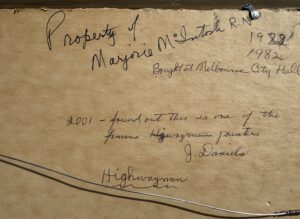 Property of
Marjorie McIntosh R.N. 1982
1982
Bought at Melbourne City Hall
2001 - found out this is one of the
famous Highwayman painters
J. Daniels
Highwaymen